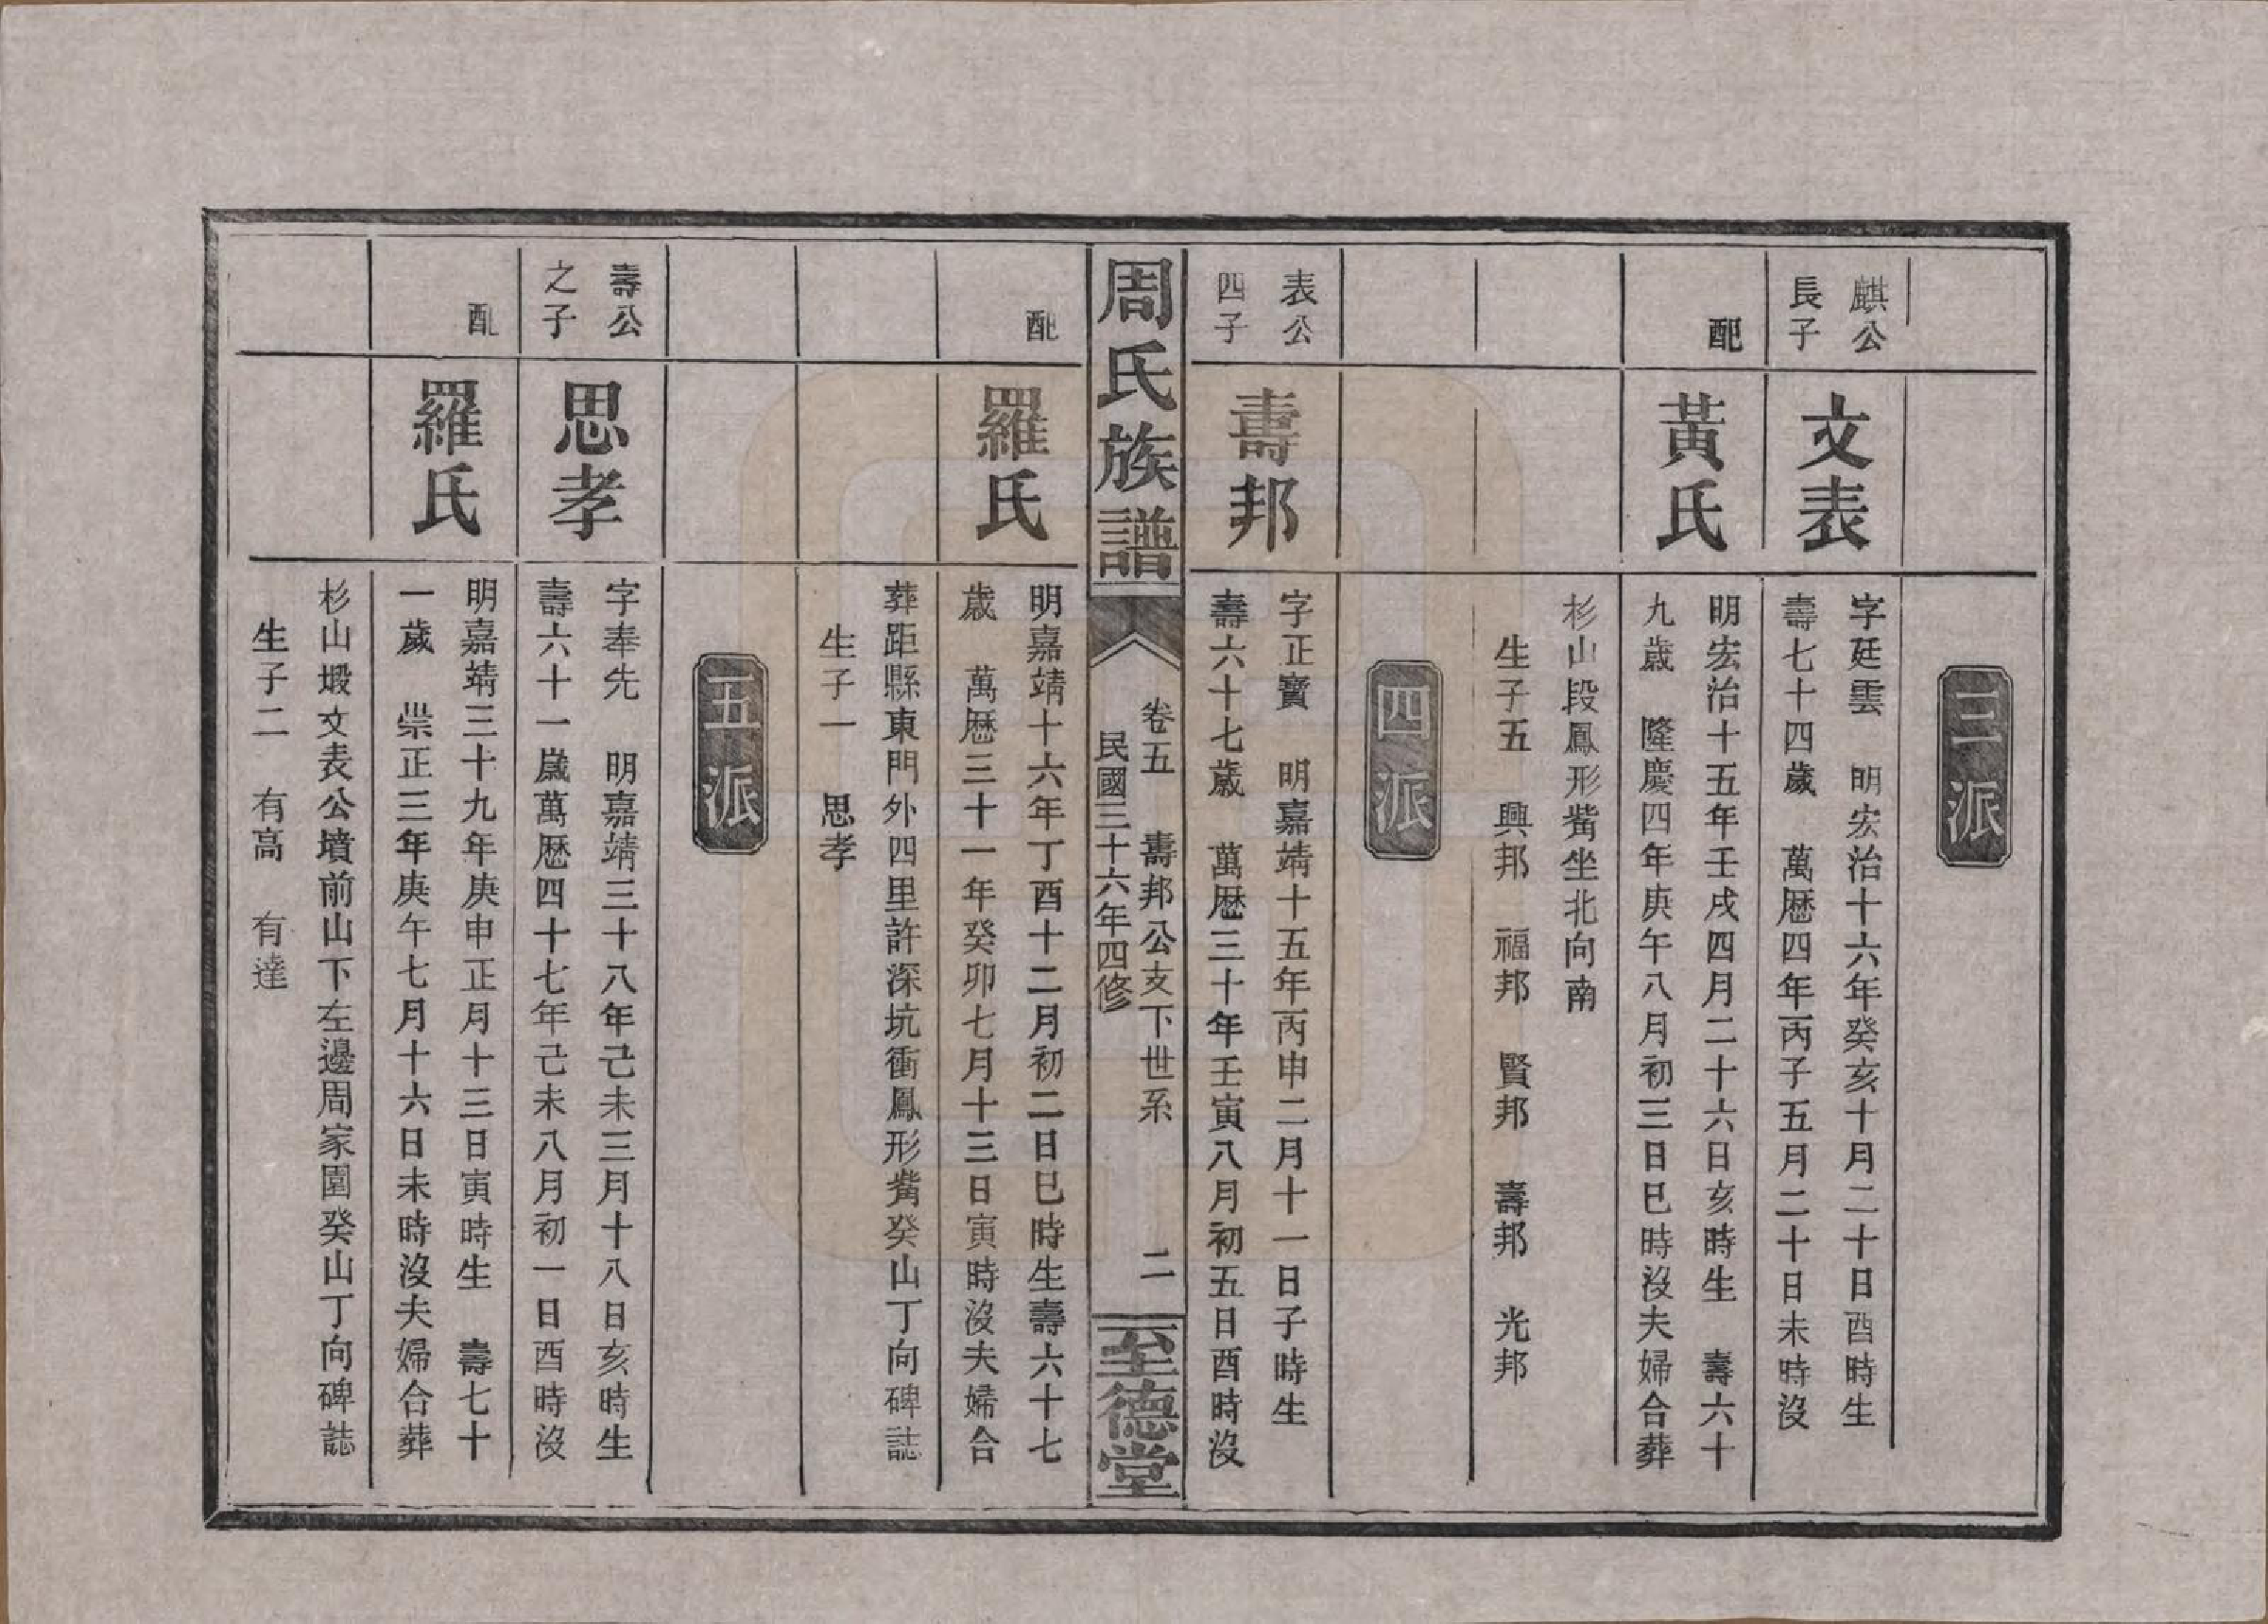 三派
麒公
長子
文表
字廷雲　明宏治十六年癸亥十月二十日酉時生
壽七十四歲　萬厯四年丙子五月二十日未時沒
配
黃氏
明宏治十五年壬戌四月二十六日亥時生　壽六十
九歲　隆慶四年庚午八月初三日巳時沒夫婦合葬
杉山段鳳形觜坐北向南
生子五　興邦　福邦　賢邦　壽邦　光邦
四派
表公
四子
壽邦
字正寶　明嘉靖十五年丙申二月十一日子時生
壽六十七歲　萬厯三十年壬寅八月初五日酉時沒
周氏族譜
卷五　壽邦公支下世系　二
民國三十六年四修
至德堂
配
羅氏
明嘉靖十六年丁酉十二月初二日巳時生壽六十七
歲　萬厯三十一年癸卯七月十三日寅時沒夫婦合
葬距縣東門外四里許深坑衝鳳形觜癸山丁向碑誌
生子一　思孝
五派
壽公
之子
思孝
字奉先　明嘉靖三十八年己未三月十八日亥時生
壽六十一歲萬厯四十七年己未八月初一日酉時沒
配
羅氏
明嘉靖三十九年庚申正月十三日寅時生　壽七十
一歲　崇正三年庚午七月十六日未時沒夫婦合葬
杉山塅文表公墳前山下左邊周家園癸山丁向碑誌
生子二　有高　有達